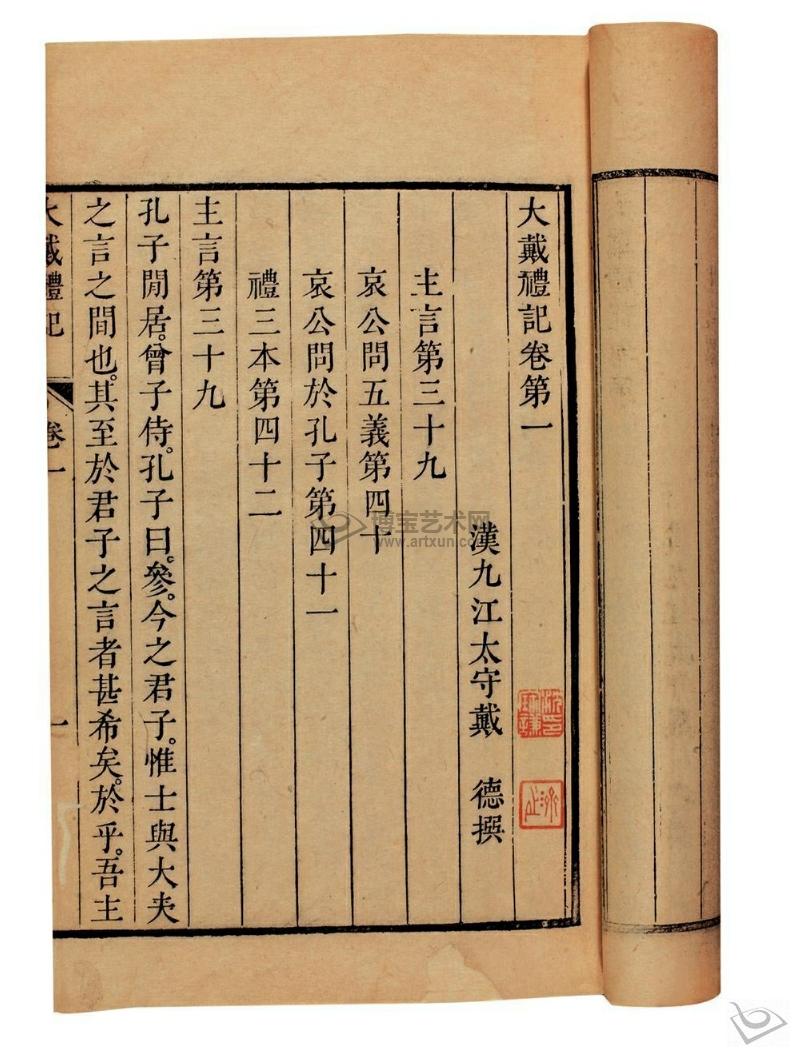 大戴禮記卷第一
漢九江太守戴　德撰
主言第三十九
哀公問五義第四十
哀公問於孔子第四十一
禮三本第四十二
主言第三十九
孔子閒居。曾子侍。孔子曰。參。今之君子。惟士與大夫
之言之間也。其至於君子之言者甚希矣。於乎。吾主
大戴禮記　卷一　一
博宝艺术网
www.artxun.com